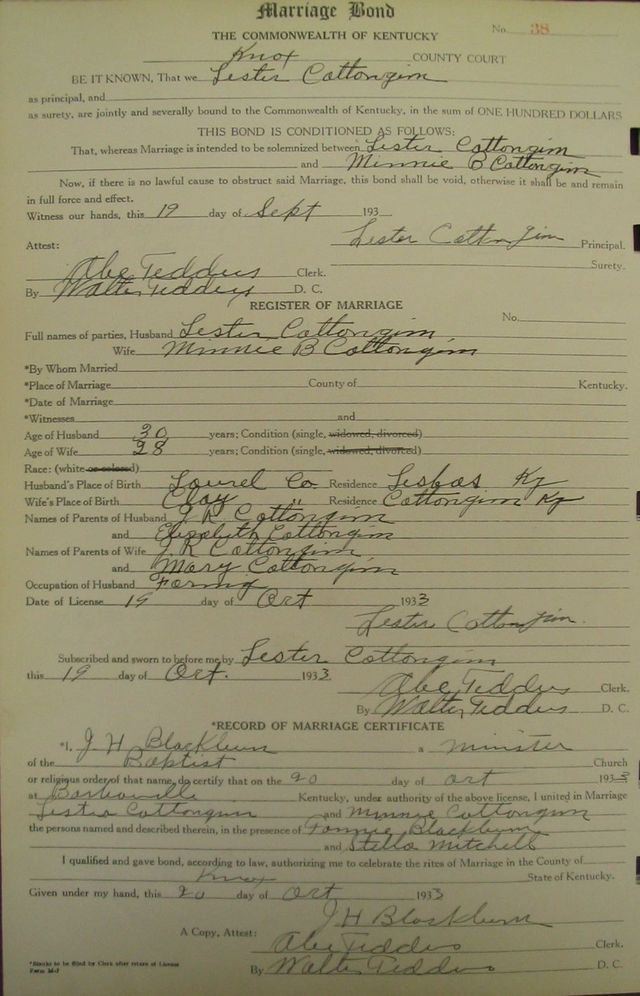 Marriage Bond
THE COMMONWEALTH OF KENTUCKY No. 38
Knox COUNTY COURT
BE IT KNOWN, That we Lester Cottongim
as principal, and
as surety, are jointly and severally bound to the Commonwealth of Kentucky, in the sum of ONE HUNDRED DOLLARS
THIS BOND IS CONDITIONED AS FOLLOWS:
That, whereas Marriage is intended to be solemnized between Lester Cottongim
and Minnie B Cottongim
Now, if there is no lawful cause to obstruct said Marriage, this bond shall be void, otherwise it shall be and remain
in full force and effect.
Witness our hands, this 19 day of Sept 193
Lester Cottongim Principal.
Attest: Surety.
Abe Teddus Clerk.
By Walter Teddus D. C.
REGISTER OF MARRIAGE
No.
Full names of parties, Husband Lester Cottongim
Wife Minnie B Cottongim
*By Whom Married
*Place of Marriage County of Kentucky.
*Date of Marriage
*Witnesses and
Age of Husband 30 years; Condition (single, widowed, divorced)
Age of Wife 28 years; Condition (single, widowed, divorced)
Race: (white or colored)
Husband's Place of Birth Laurel Co. Residence Lesbas Ky
Wife's Place of Birth Clay " Residence Cottongim Ky
Names of Parents of Husband J. R Cottongim
and Elizabyth Cottongim
Names of Parents of Wife J. R Cottongim
and Mary Cottongim
Occupation of Husband Farming
Date of License 19 day of Oct 1933
Lester Cottongim.
Subscribed and sworn to before me by Lester Cottongim
this 19 day of Oct. 1933
Abe Teddus Clerk.
By Walter Teddus D. C.
*RECORD OF MARRIAGE CERTIFICATE
*I, J H Blackburn a minister
of the Baptist Church
or religious order of that name, do certify that on the 20 day of Oct 1933
at Barbourville Kentucky, under authority of the above license, I united in Marriage
Lester Cottongim and Minnie Cottongim
the persons named and described therein, in the presence of Fannie Blackburn
and Stella Mitchell
I qualified and gave bond, according to law, authorizing me to celebrate the rites of Marriage in the County of
Knox State of Kentucky.
Given under my hand, this 20 day of Oct 1933
J H Blackburn
A Copy, Attest: Abe Teddus Clerk.
*Blanks to be filled by Clerk after return of License
Form M-7 By Walter Teddus D. C.